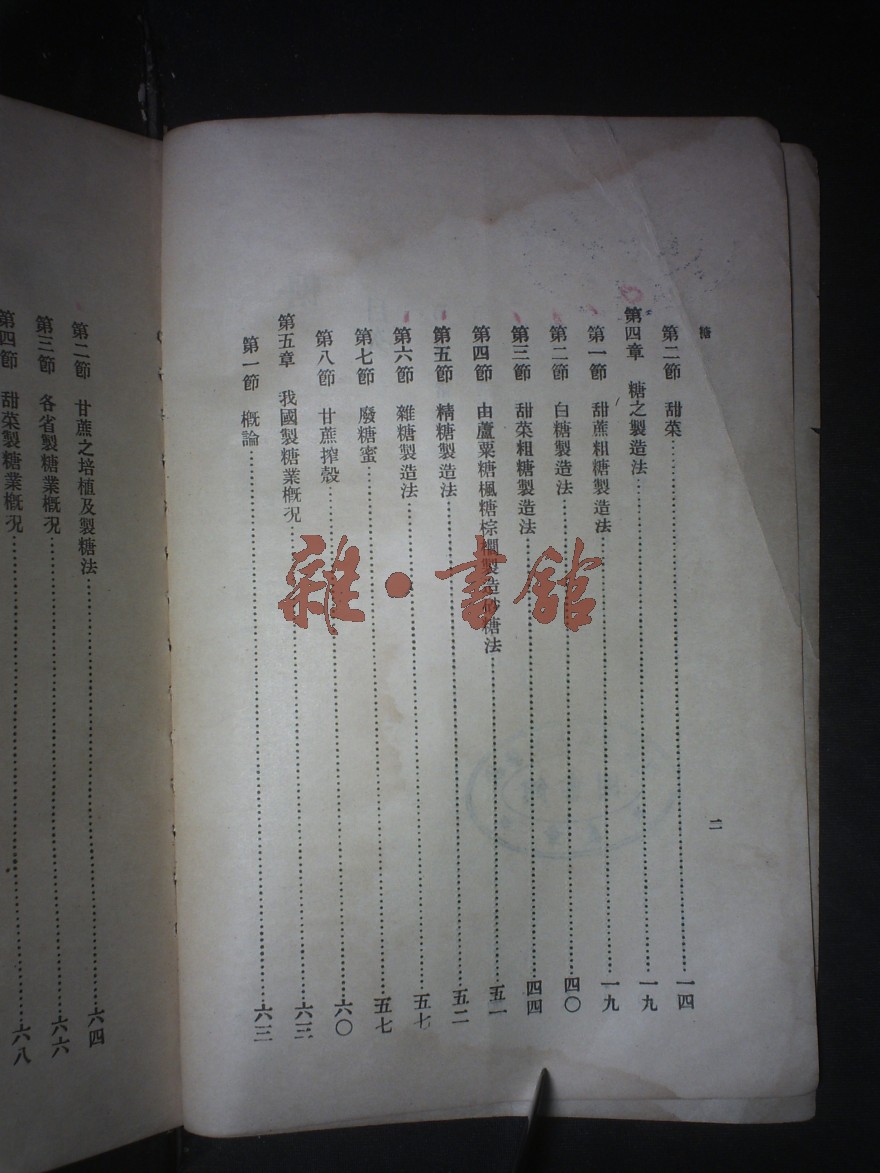 糖
二
第二節 甜菜……一四
第四章 糖之製造法……一九
第一節 甜蔗粗糖製造法……一九
第二節 白糖製造法……四〇
第三節 甜菜粗糖製造法……四四
第四節 由蘆粟糖楓糖棕櫚製造砂糖法……五一
第五節 精糖製造法……五二
第六節 雜糖製造法……五七
第七節 廢糖蜜……五七
第八節 甘蔗搾殼……六〇
第五章 我國製糖業概況……六三
第一節 概論……六三
第二節 甘蔗之培植及製糖法……六四
第三節 各省製糖業概況……六六
第四節 甜菜製糖業概況……六八
雜·書館